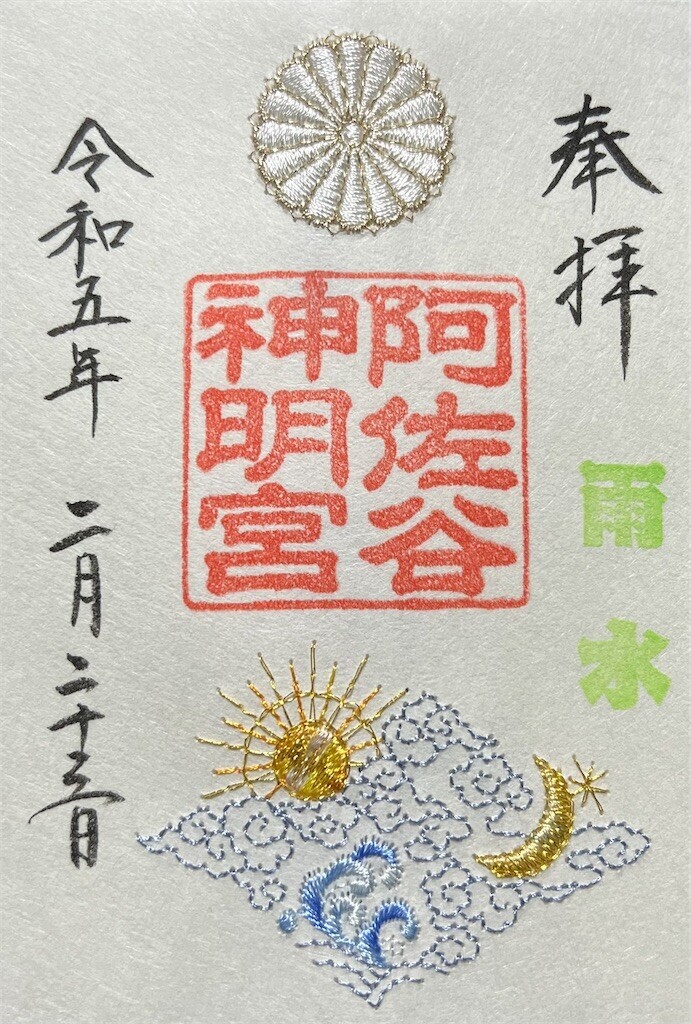 奉拝
雨水
阿佐谷
神明宮
令和五年 二月二十三日